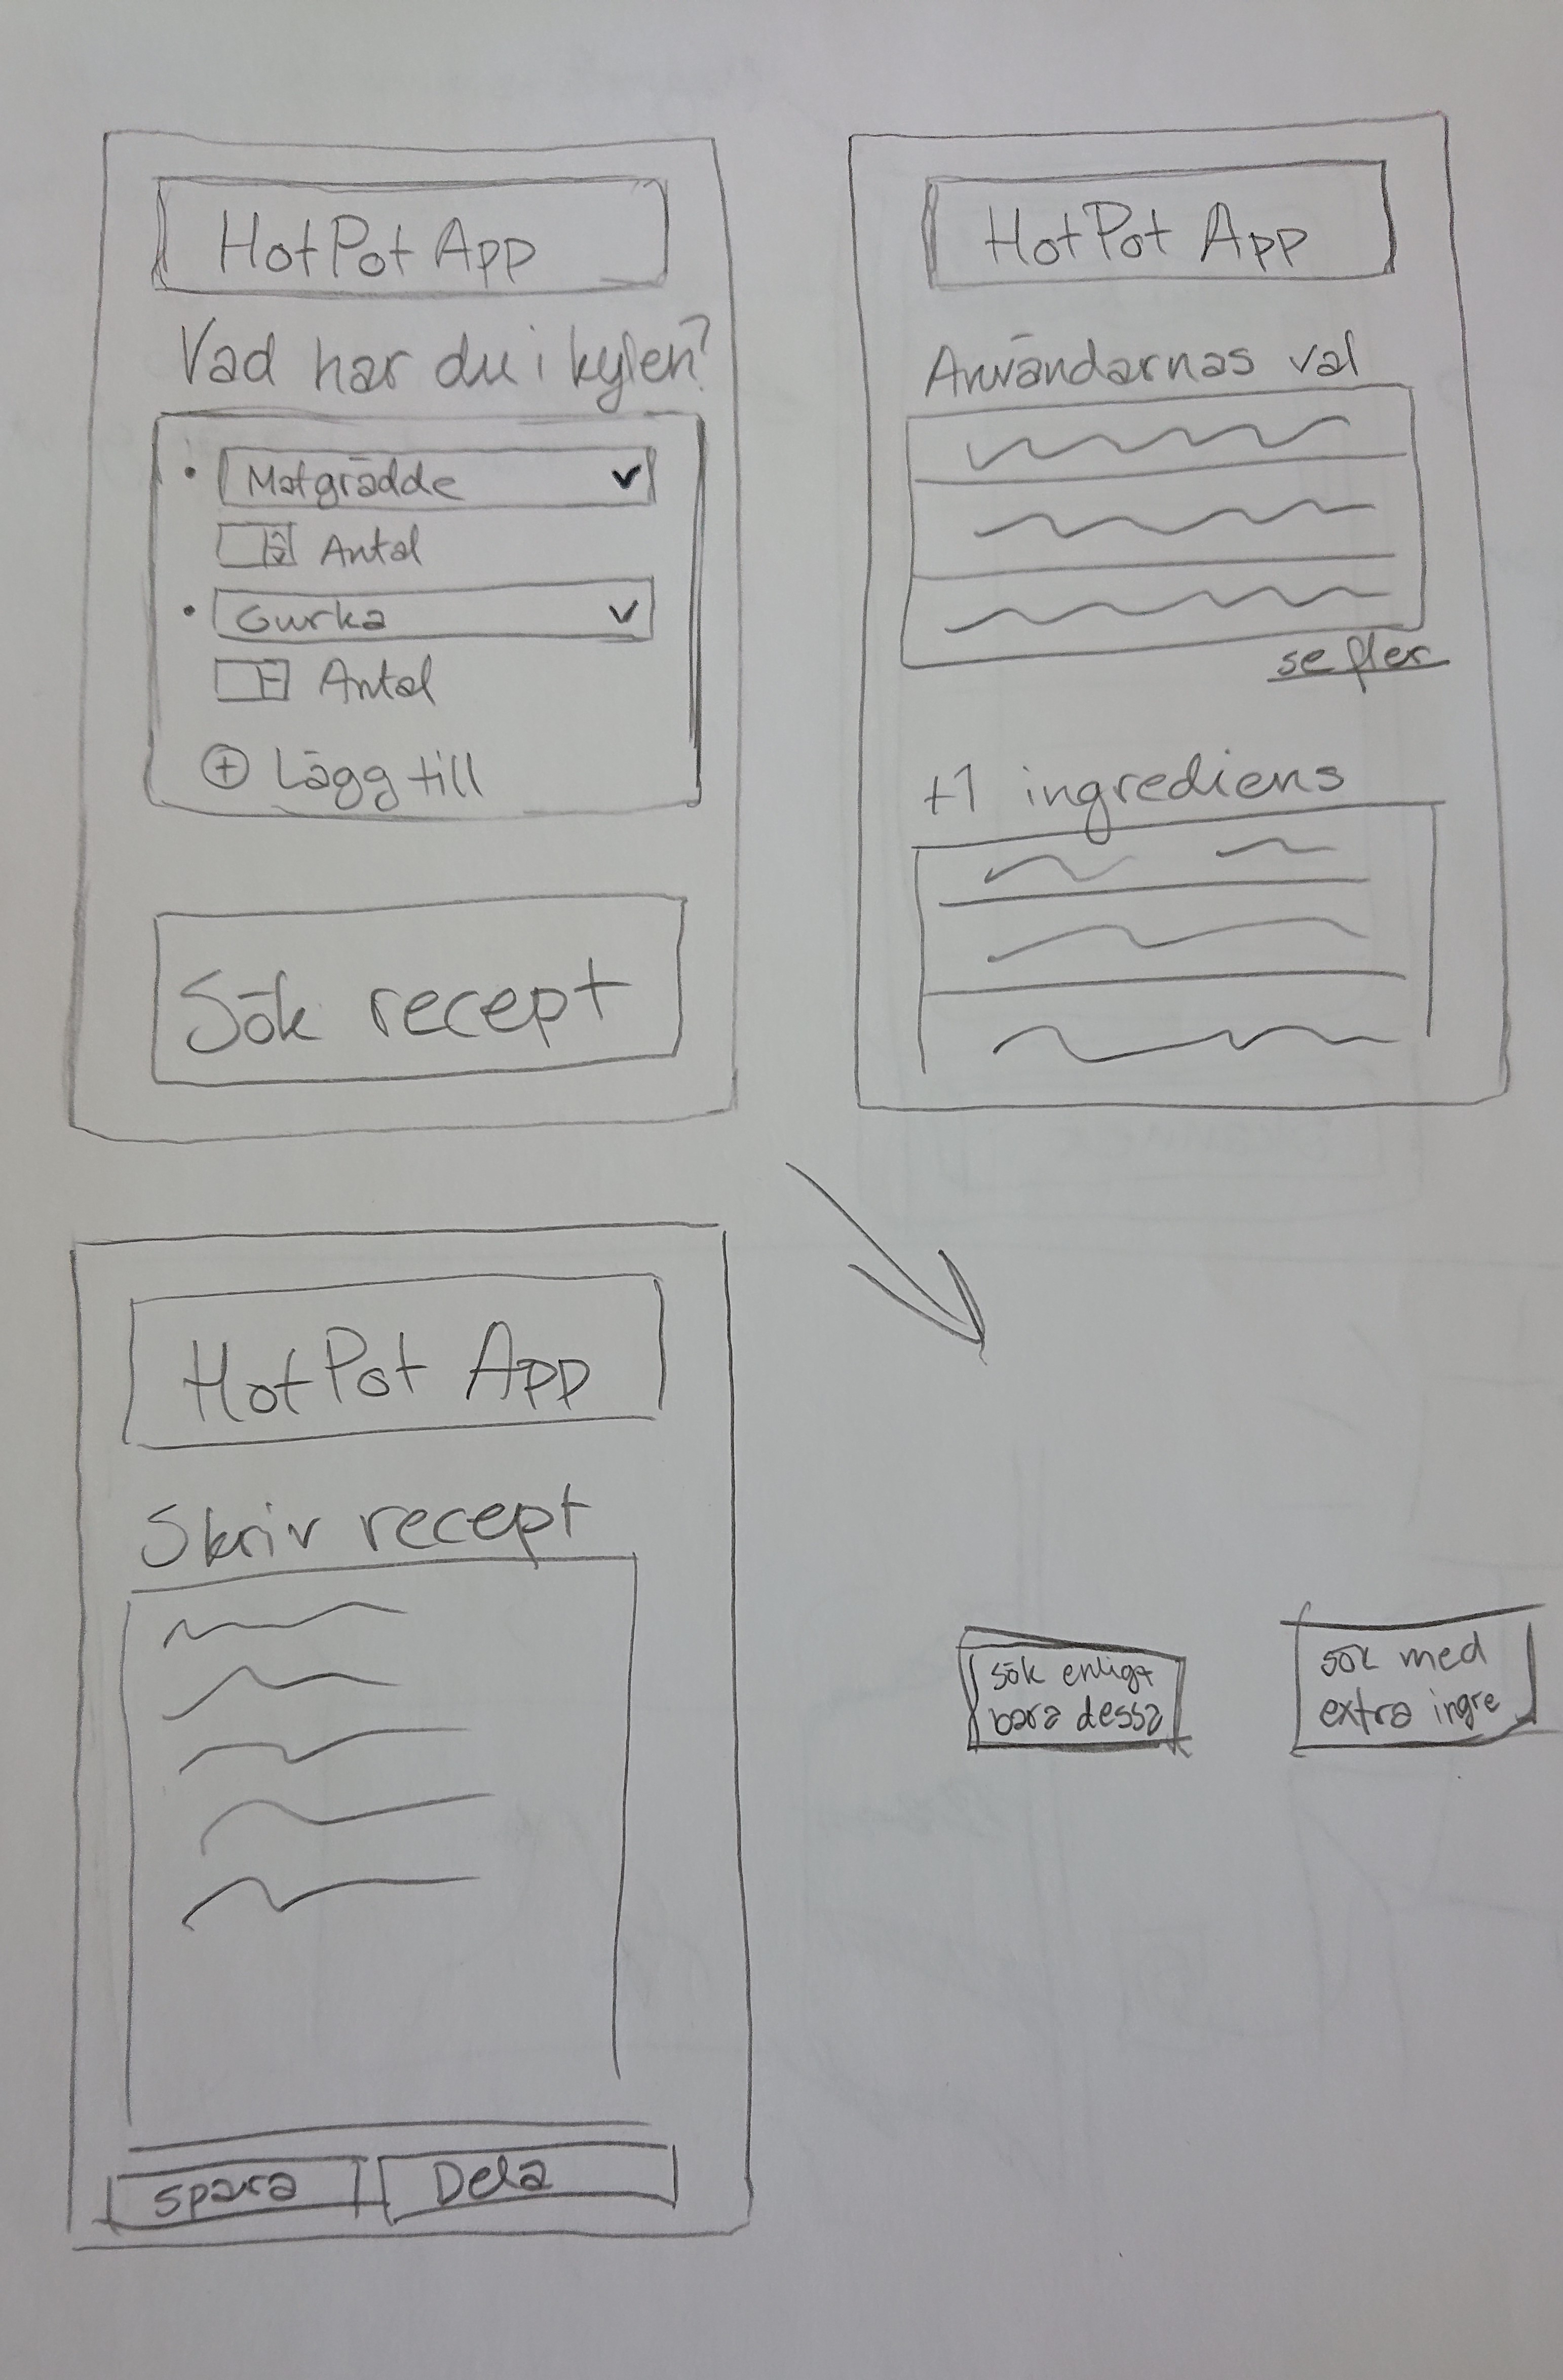 HotPot App
Vad har du i kylen?
Matgrädde
Antal
Gurka
Antal
+ Lägg till
Sök recept
HotPot App
Användarnas val
se fler
+1 ingrediens
HotPot App
Skriv recept
Spara
Dela
sök enligt
bara dessa
sök med
extra ingre